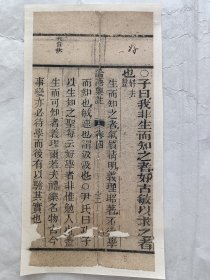 ○子曰我非生而知之者好古敏以求之者
也
好去聲
生而知之者氣質清明義理昭著不待學
論語集註 卷四
而知也敏速也謂汲汲也○尹氏曰孔子
以生知之聖每云好學者非惟勉人也蓋
生而可知者義理爾若夫禮樂名物古今
事變亦必待學而後有以驗其實也
好